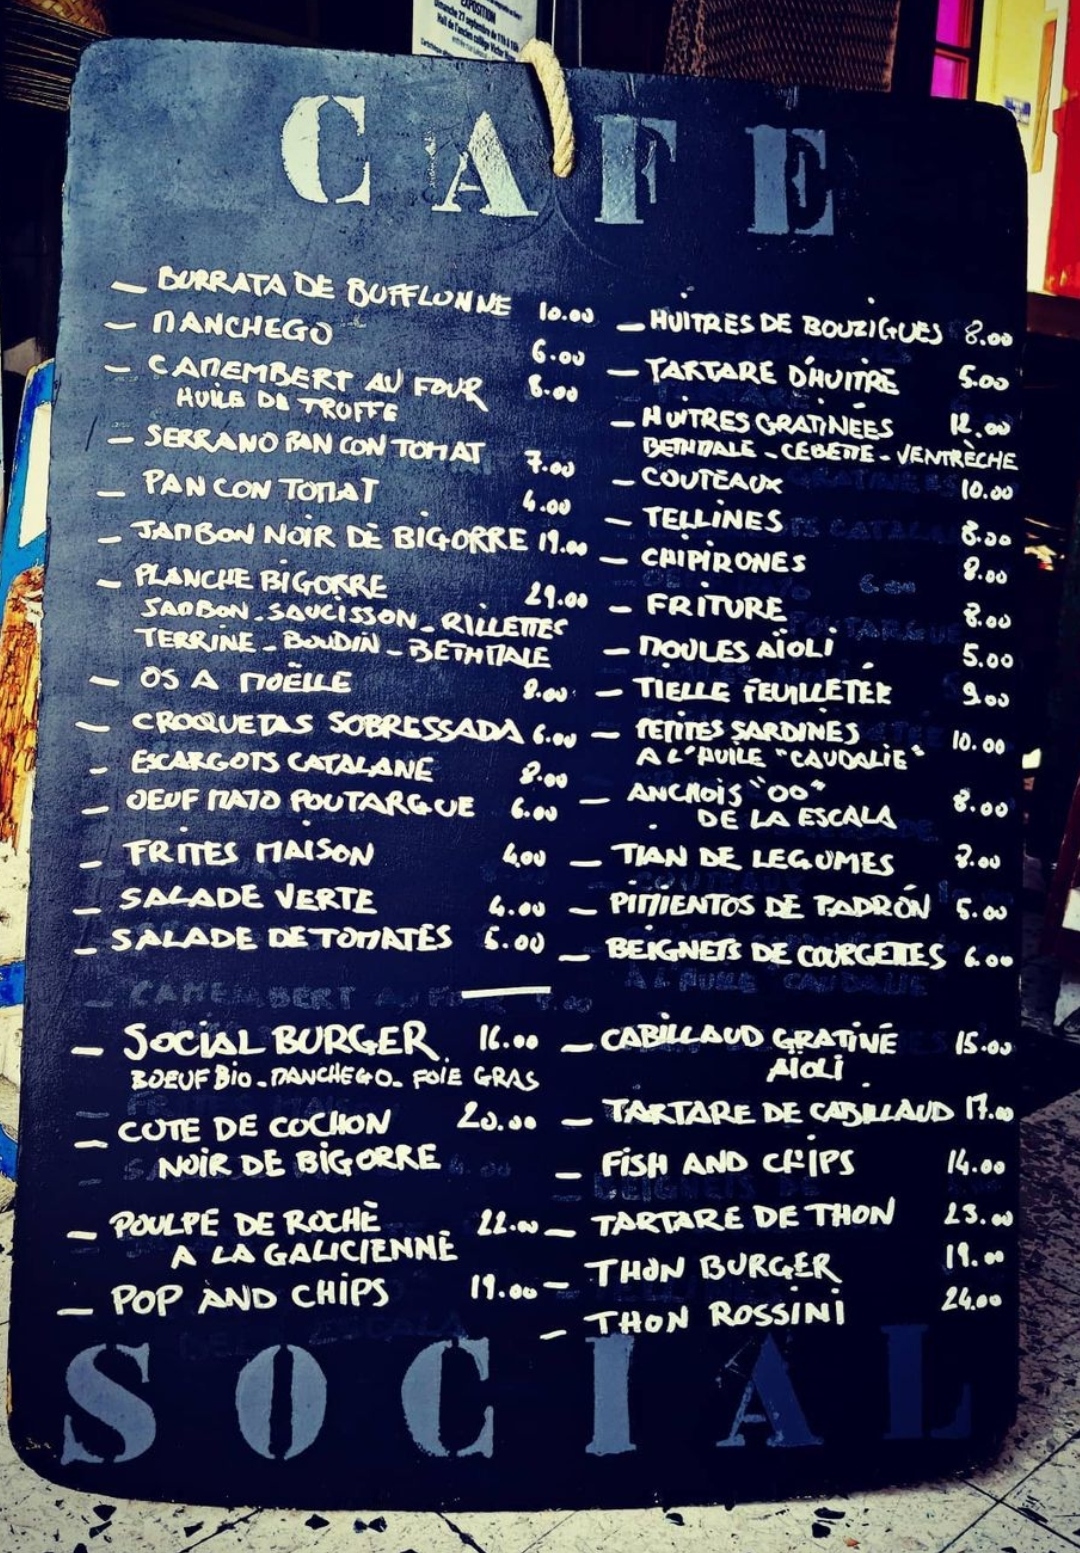 EXPOSITION
CAFE
– BURRATA DE BUFFLONNE 10.00
– MANCHEGO 6.00
– CAMEMBERT AU FOUR 8.00
HUILE DE TRUFFE
– SERRANO PAN CON TOMAT 7.00
– PAN CON TOMAT 4.00
– JAMBON NOIR DE BIGORRE 19.00
– PLANCHE BIGORRE 29.00
JAMBON - SAUCISSON - RILLETTES
TERRINE - BOUDIN - BETHMALE
– OS A MOËLLE 8.00
– CROQUETAS SOBRESSADA 6.00
– ESCARGOTS CATALANE 8.00
– OEUF MAYO POUTARGUE 6.00
– FRITES MAISON 4,00
– SALADE VERTE 4.00
– SALADE DE TOMATES 5.00
– HUITRES DE BOUZIGUES 8.00
– TARTARE D'HUITRE 5.00
– HUITRES GRATINEES 12.00
BETHMALE - CEBETTE - VENTRÈCHE
– COUTEAUX 10.00
– TELLINES 8.00
– CHIPIRONES 8.00
– FRITURE 8.00
– MOULES AÏOLI 5.00
– TIELLE FEUILLETÉE 9.00
– PETITES SARDINES 10.00
A L'HUILE "CAUDALIE"
– ANCHOIS "OO" 8.00
DE LA ESCALA
– TIAN DE LEGUMES 8.00
– PIMIENTOS DE PADRÓN 5.00
– BEIGNETS DE COURGETTES 6.00
– SOCIAL BURGER 16.00
BOEUF BIO - MANCHEGO - FOIE GRAS
– COTE DE COCHON 20.00
NOIR DE BIGORRE
– POULPE DE ROCHE 22.00
A LA GALICIENNE
– POP AND CHIPS 19.00
– CABILLAUD GRATINÉ 15.00
AÏOLI
– TARTARE DE CABILLAUD 17.00
– FISH AND CHIPS 14.00
– TARTARE DE THON 23.00
– THON BURGER 19.00
– THON ROSSINI 24.00
SOCIAL